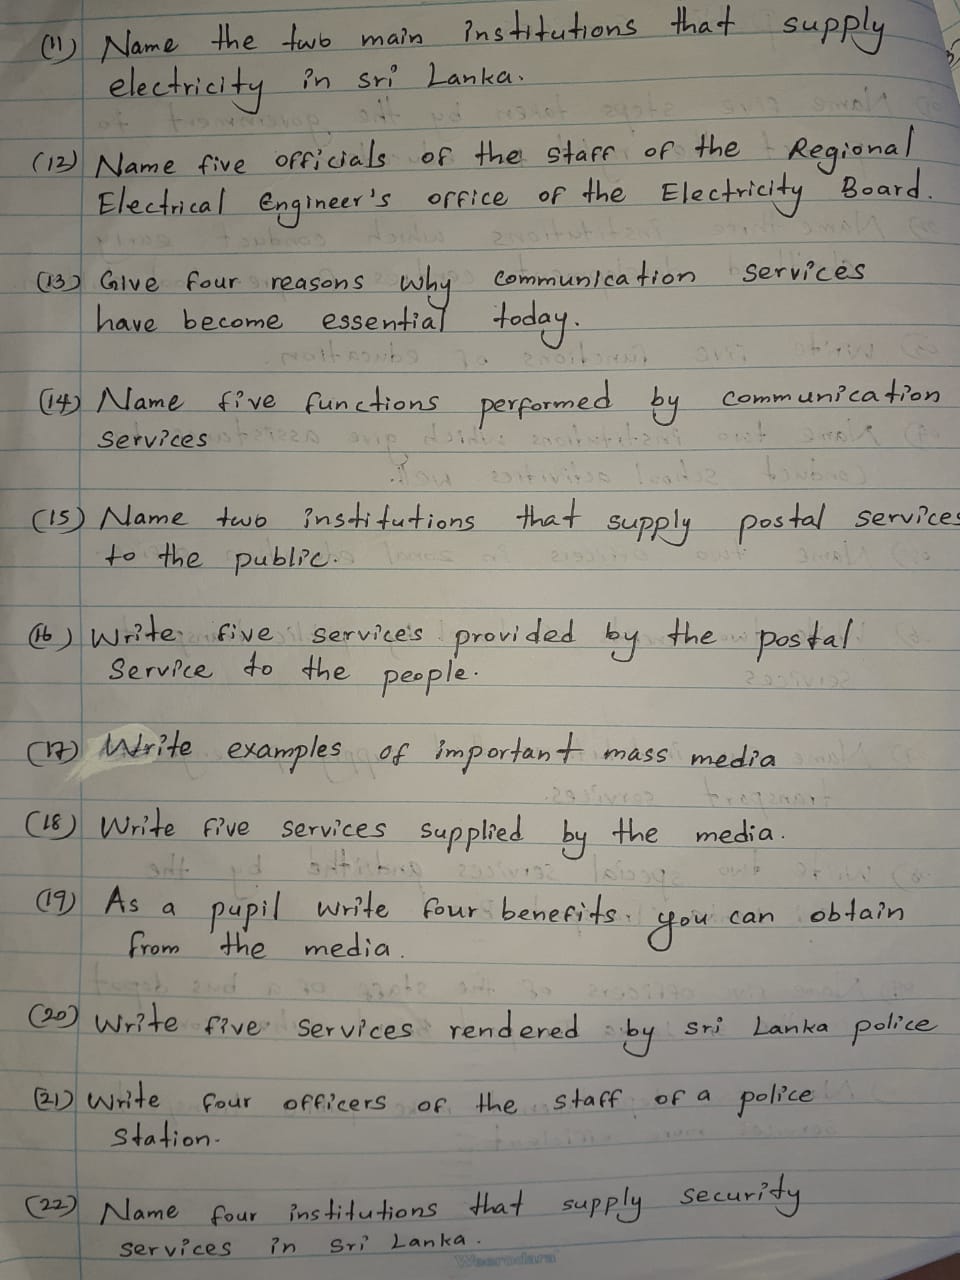 (11) Name the two main institutions that supply
electricity in sri Lanka.
(12) Name five officials of the staff of the Regional
Electrical Engineer's office of the Electricity Board.
(13) Give four reasons why communication services
have become essential today.
(14) Name five functions performed by communication
services
(15) Name two institutions that supply postal services
to the public.
(16) Write five services provided by the postal
Service to the people.
(17) Write examples of important mass media
(18) Write five services supplied by the media.
(19) As a pupil write four benefits you can obtain
from the media.
(20) Write five services rendered by sri Lanka police
(21) Write four officers of the staff of a police
Station.
(22) Name four institutions that supply security
services in Sri Lanka.
Weerodara